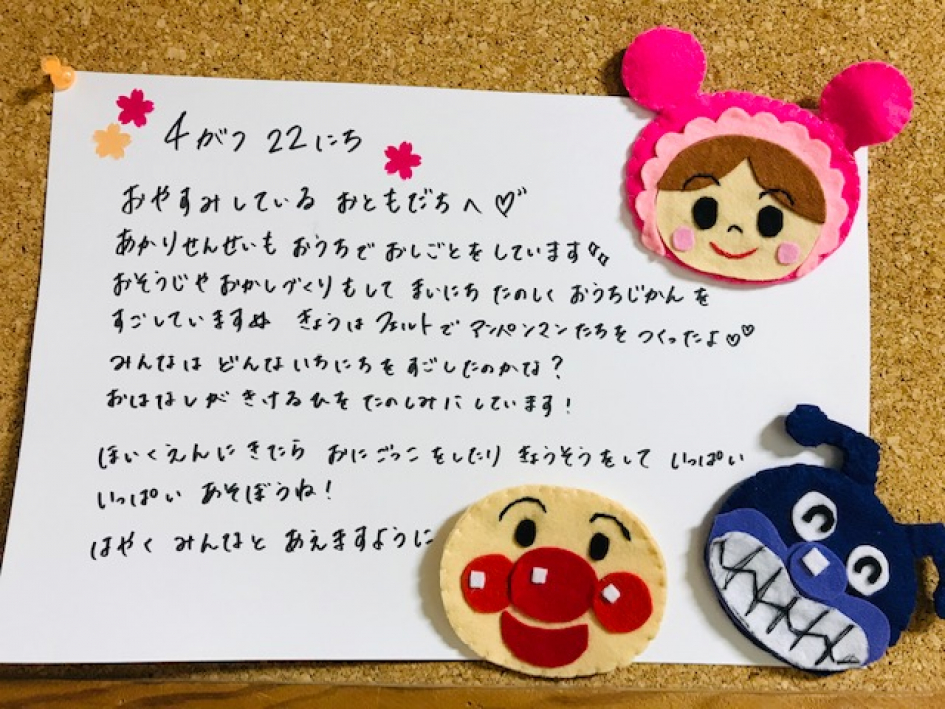 4がつ 22にち
おやすみしている おともだちへ♡
あかりせんせいも おうちで おしごとをしています
おそうじや おかしづくりもして まいにち たのしく おうちじかんを
すごしていますぬ きょうは フェルトで アンパンマンたちを つくったよ♡♡
みんなは どんないちにちを すごしたのかな?
おはなしが きけるひを たのしみに しています!
ほいくえんに きたら おにごっこ をしたり きょうそうをして いっぱい
いっぱい あそぼうね!
はやく みんなと あえますように